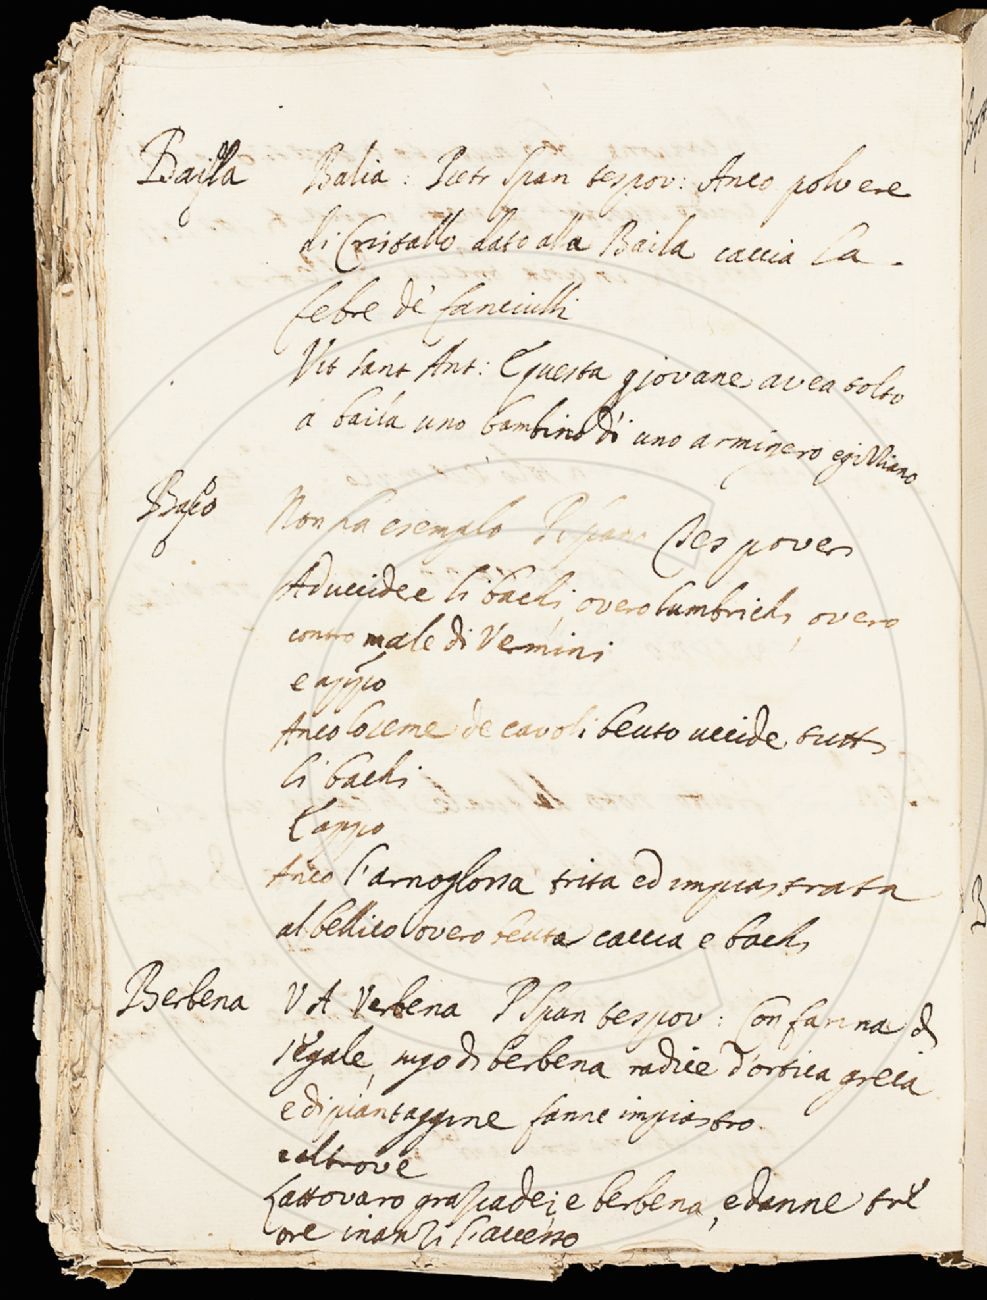 Baila Balia: Pietr Span tes pov: Anco polvere
di Cristallo dato alla Baila caccia la
febre de fanciulli
Vit Sant Ant: Questa giovane avea tolto
a baila uno bambino di uno arminero
Baco Non ha esemplo P Span tes pover
Ad uccidere li bachi, overo lumbrichi, overo
contro male di Vermini
e appo
Anco lo seme de cavoli beuto uccide tutti
li bachi
E appo
Anco l'arnoglossa trita ed impiastrata
al bellico overo beuta caccia e bachi
Berbena V A Verbena P Span tes pov: Con farina di
segale, sugo di berbena radice d'ortica greca
e di piantaggine fanne impiastro
altrove
Lattovaro grasciadei e berbena, e danne tre
ore inanzi l'accesso